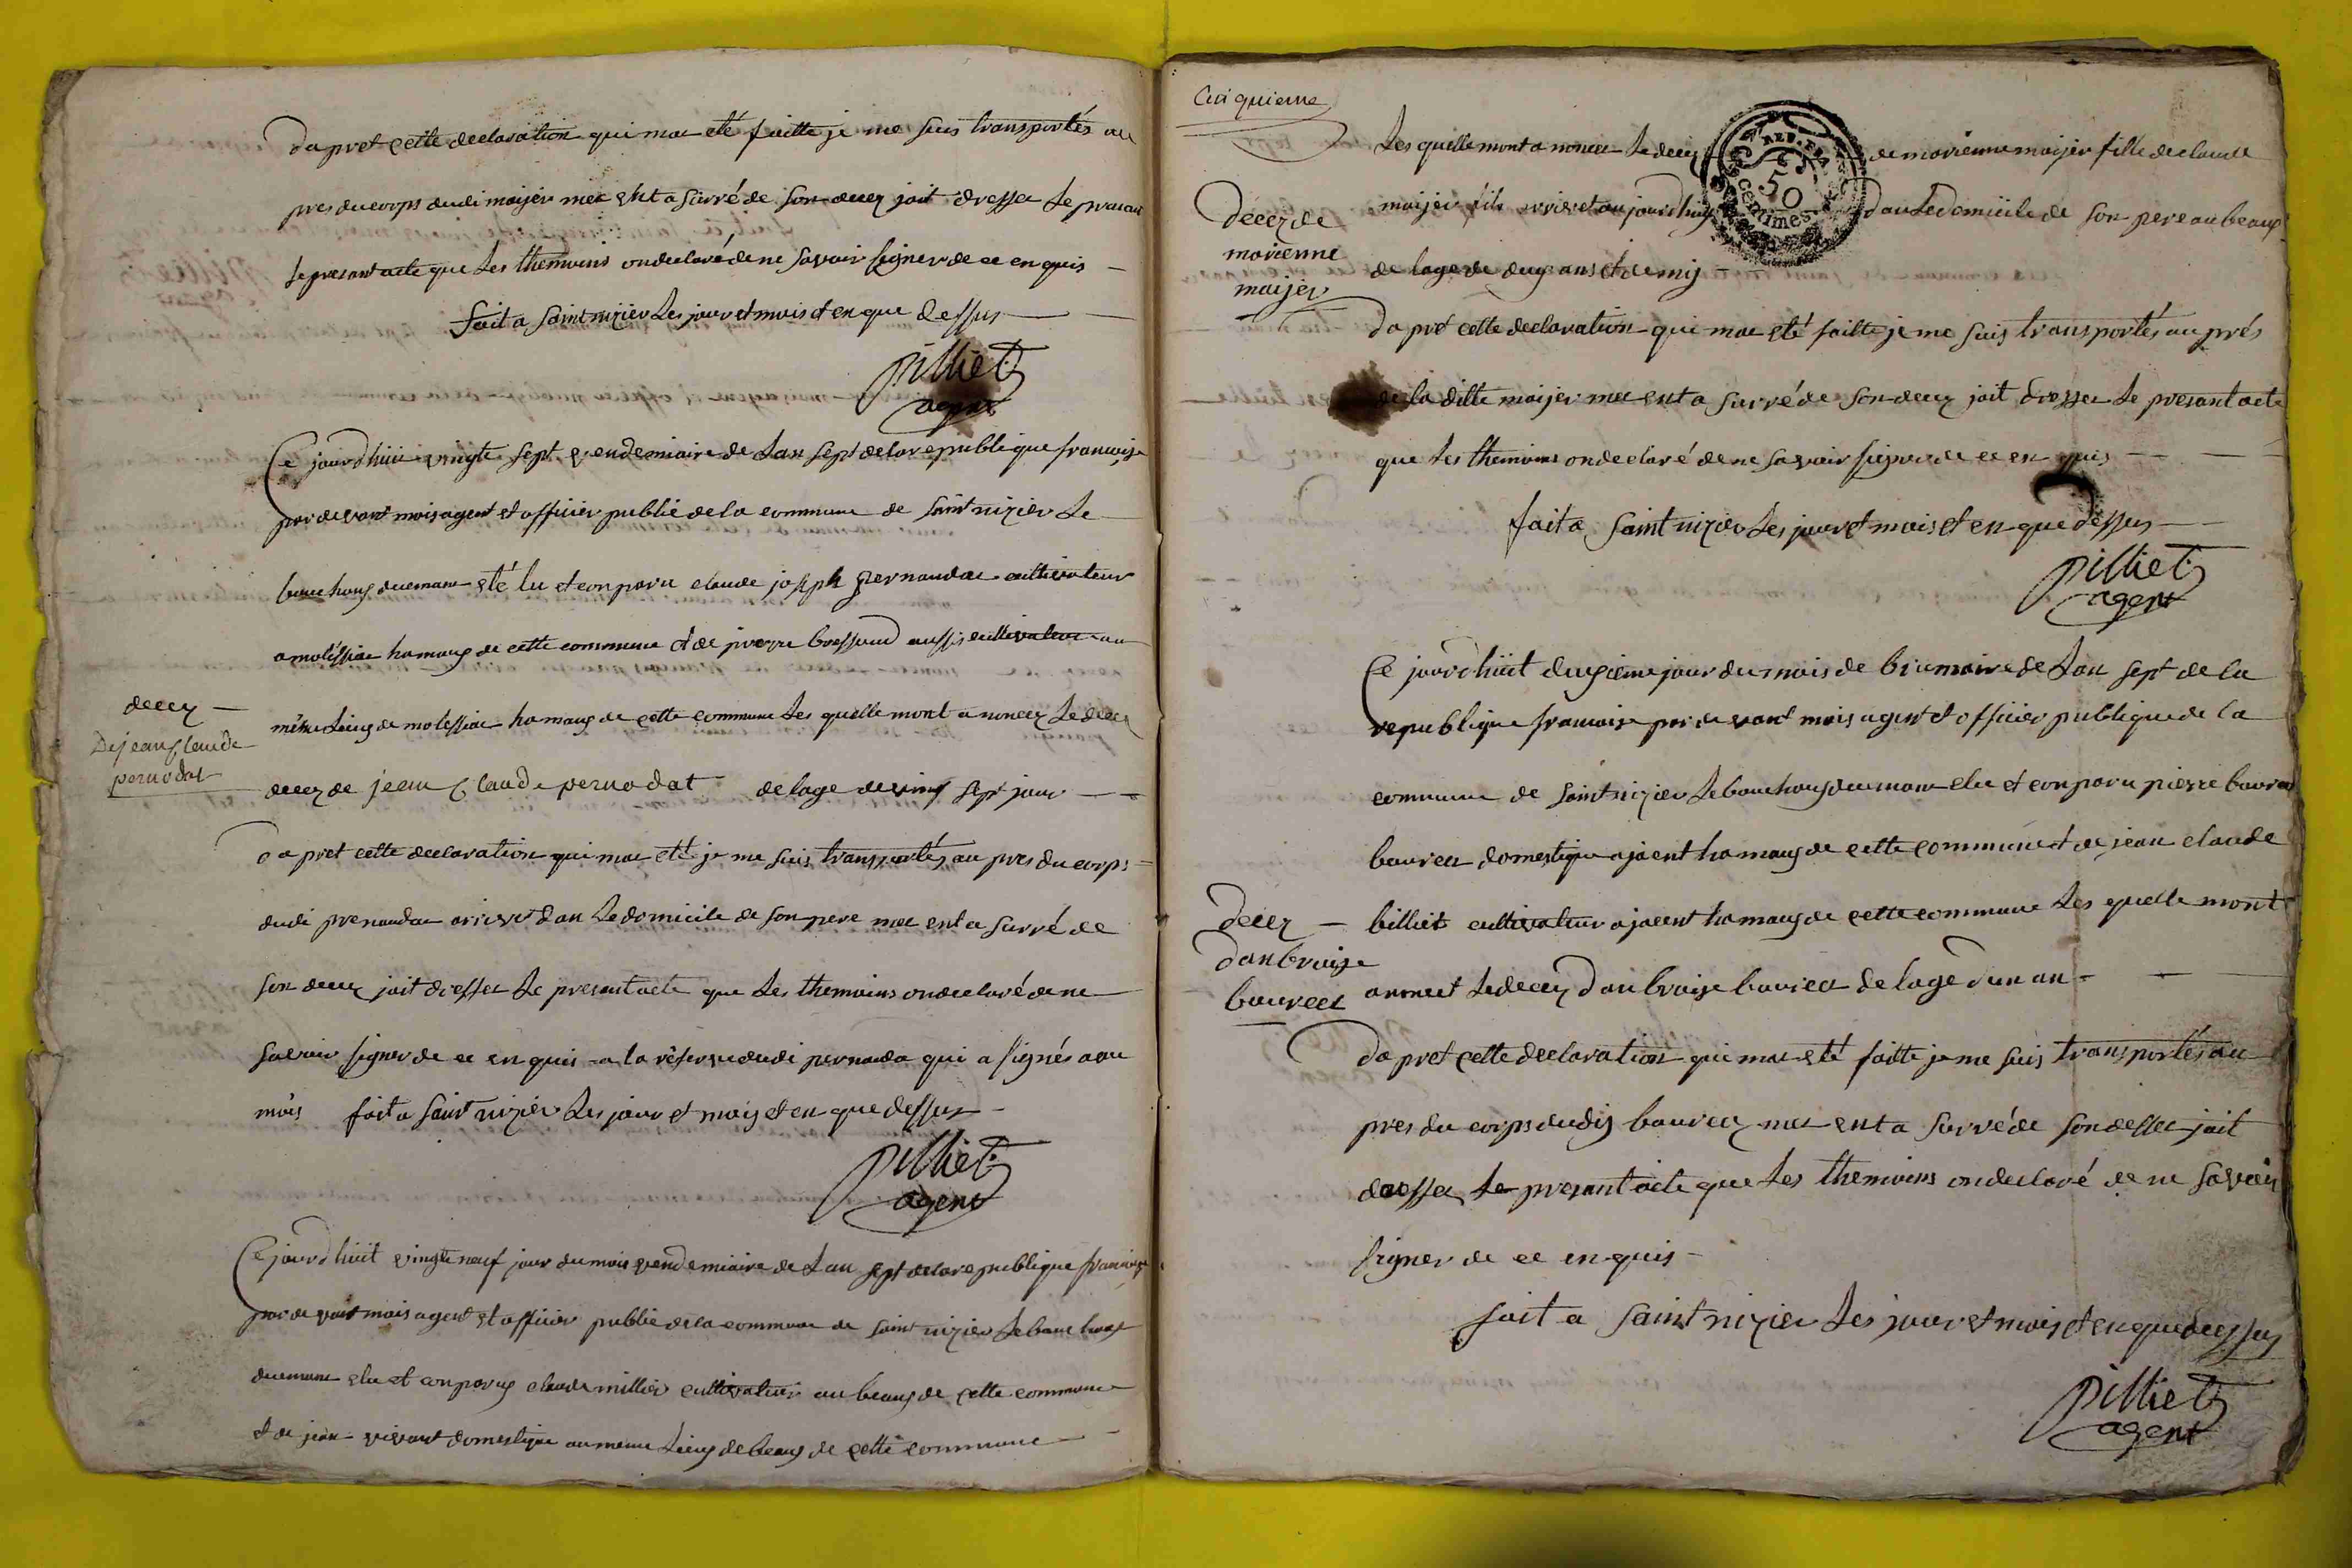 dapret cette declaration qui mat eté faitte je me suis transportés au
pres du corps dudi maijer met ent a surré de son decez jait dresser le presant
le presant acte que les themoins on declaré de ne savoir signer de ce en quis
fait a saint nizier les jour et mois et en que dessus
pilliet
agent
Ce jourdhiui vingte sept vendemiaire de lan sept de la republique francaise
par devant mois agent et officier public de la commune de saint nizier le
bouchous duemant eté lu et conparu claude joseph pernaudat cultivateur
a molissiat hamaux de cette commune et de pierre bressoud aussi cultivateur au
même lieux de molessiat hamaux de cette commune les quelle mont a noncez le decez
decez
De jean Claude
pernodat
decez de jean Claude pernodat de lage de vint sept jour
da pret cette declaration qui mat eté je me suis transportés au pres du corps
dudi prenaudat arivet dan le domicile de son pere met ent a surré de
son decez jait dresser le presant acte que les themoins on declaré de ne
savoir signer de ce en quis a la réserve dudi pernauda qui a signés avec
mois fait a saint nizier les jour et mois et en que dessus
pilliet
agent
Ce jourdhiuit vingte neuf jour du mois vendemiaire de lan sept de la republique francaise
par devant mois agent et officier public de la commune de saint nizier le bouchoux
duemant elu et conparus claude millier cultivateur au beaux de cette commune
et de jean vivant domestique au meme lieux de beaux de cette commune
Cinquieme
Les quelle mont a noncer le decez de morienne maijer fille de claude
maijer fils arivet aujourdhuy dan le domicile de son pere au beaux
REP. FRA
50
CENTIMES
decez de
morienne
maijer
de lage de deux ans et demij
da pré cette declaration qui mat eté faitte je me suis transportés au prés
de la ditte maijer met ent a surré de son decez jait dresser le presant acte
que les themoins on declaré de ne savoir signer de ce en quis
fait a saint nizier les jour et mois et en que dessus
pilliet
agent
Ce jourdhiuit deuxieme jour du mois de brumaire de lan sept de la
republique francaise par devant mois agent et officier publique de la
commune de saint nizier le bouchoux duemant elu et conparu pierre bourcet
bourcet domestique ajacent hamaux de cette commune et de jean claude
decez
danbroise
bourcet
billiet cultivateur ajacent hamaux de cette commune les quelle mont
annncet le decez danbroise bourcet de lage dun an
da pret cette declaration qui mat eté faitte je me suis transportés au
pres du corps dudis bourcez met ent a surré de son desser jait
dresser le presant acte que les themoins on declaré de ne savoir
signer de ce en quis
fait a saint nizier les jour et mois et en que dessus
pilliet
agent